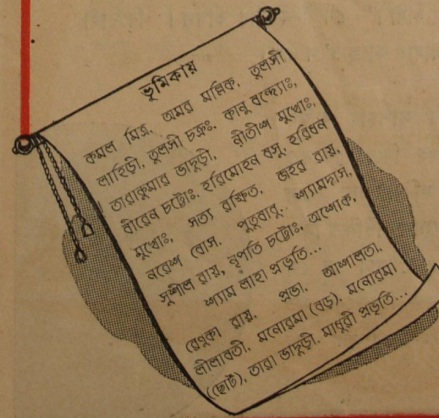 ভূমিকায়
কমল মিত্র, অমর মল্লিক, তুলসী
লাহিড়ী, তুলসী চক্রঃ, কানু বন্দ্যোঃ,
তারাকুমার ভাদুড়ী, নীতীশ মুখোঃ,
বীরেন চট্টোঃ, হরিমোহন বসু, হরিধন
মুখোঃ, সত্য রক্ষিত, জহর রায়,
নরেশ বোস, পুতুবাবু, শ্যামদাস,
সুশীল রায়, নৃপতি চট্টোঃ, অশোক,
শ্যাম লাহা প্রভৃতি...
রেণুকা রায়, প্রভা, আশালতা,
লীলাবতী, মনোরমা (বড়), মনোরমা
(ছোট), তারা ভাদুড়ী, মাধুরী প্রভৃতি...